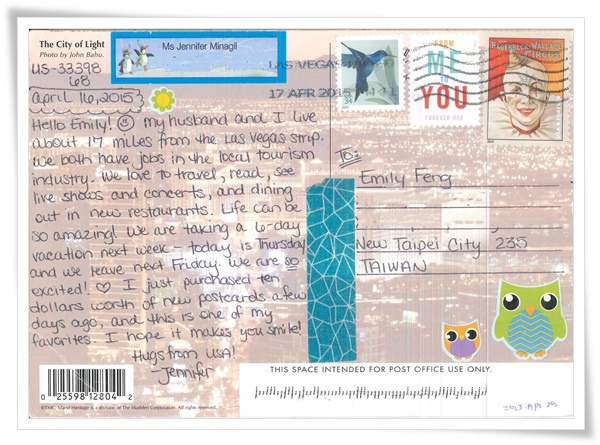 The City of Light
Photo by John Bahu.
Ms Jennifer Minagil
US-33398
68
April 16, 2015
LAS VEGAS NV
17 APR 2015
FROM
ME
TO
YOU
FOREVER USA
HAGENBECK-WALLACE
CIRCUS
Hello Emily! My husband and I live
about 17 miles from the Las Vegas strip.
We both have jobs in the local tourism
industry. We love to travel, read, see
live shows and concerts, and dining
out in new restaurants. Life can be
so amazing! We are taking a 6-day
vacation next week - today is Thursday
and we leave next Friday. We are so
excited! ♡ I just purchased ten
dollars worth of new postcards a few
days ago, and this is one of my
favorites. I hope it makes you smile!
Hugs from usa!
Jennifer
To:
Emily Feng
New Taipei City 235
TAIWAN
THIS SPACE INTENDED FOR POST OFFICE USE ONLY.
0 25598 12804 2
©TMC. Island Heritage is a division of The Madden Corporation. All rights reserved.